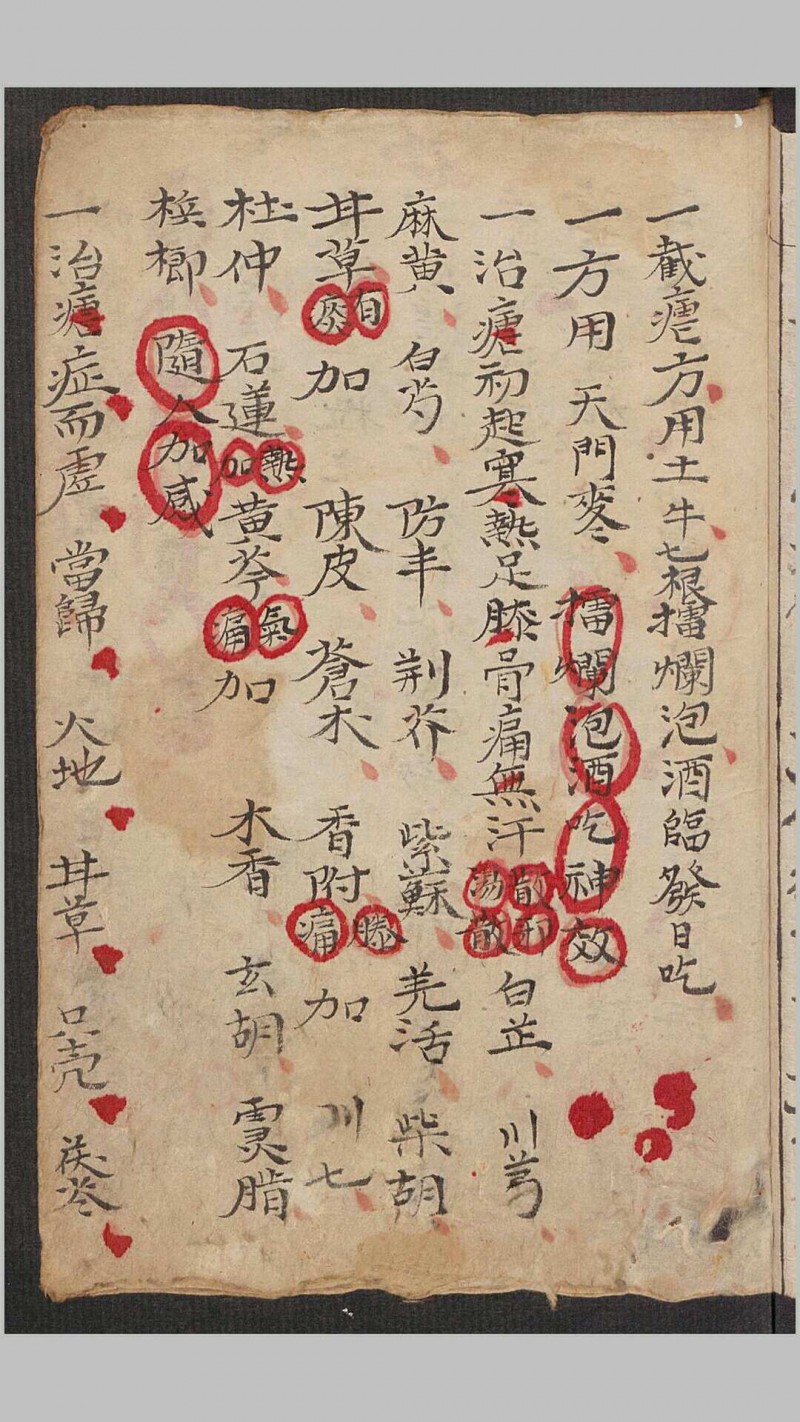 一截瘧方用土牛七根擂爛泡酒臨發日吃
一方用 天門麥冬 擂爛泡酒吃神效
一治瘧初起寞熱足膝骨痛無汗 散邪湯散 白芷 川芎
麻黄 白芍 防丰 荆芥 紫蘇 羌活 柴胡
甘草 有痰 加 陳皮 蒼术 香附 膝痛 加 川七
杜仲 石蓮 熱加 黄芩 氣痛 加 木香 玄胡 灵脂
檳榔 隨人加咸
一治瘧症而虛 當歸 火地 甘草 只壳 茯苓